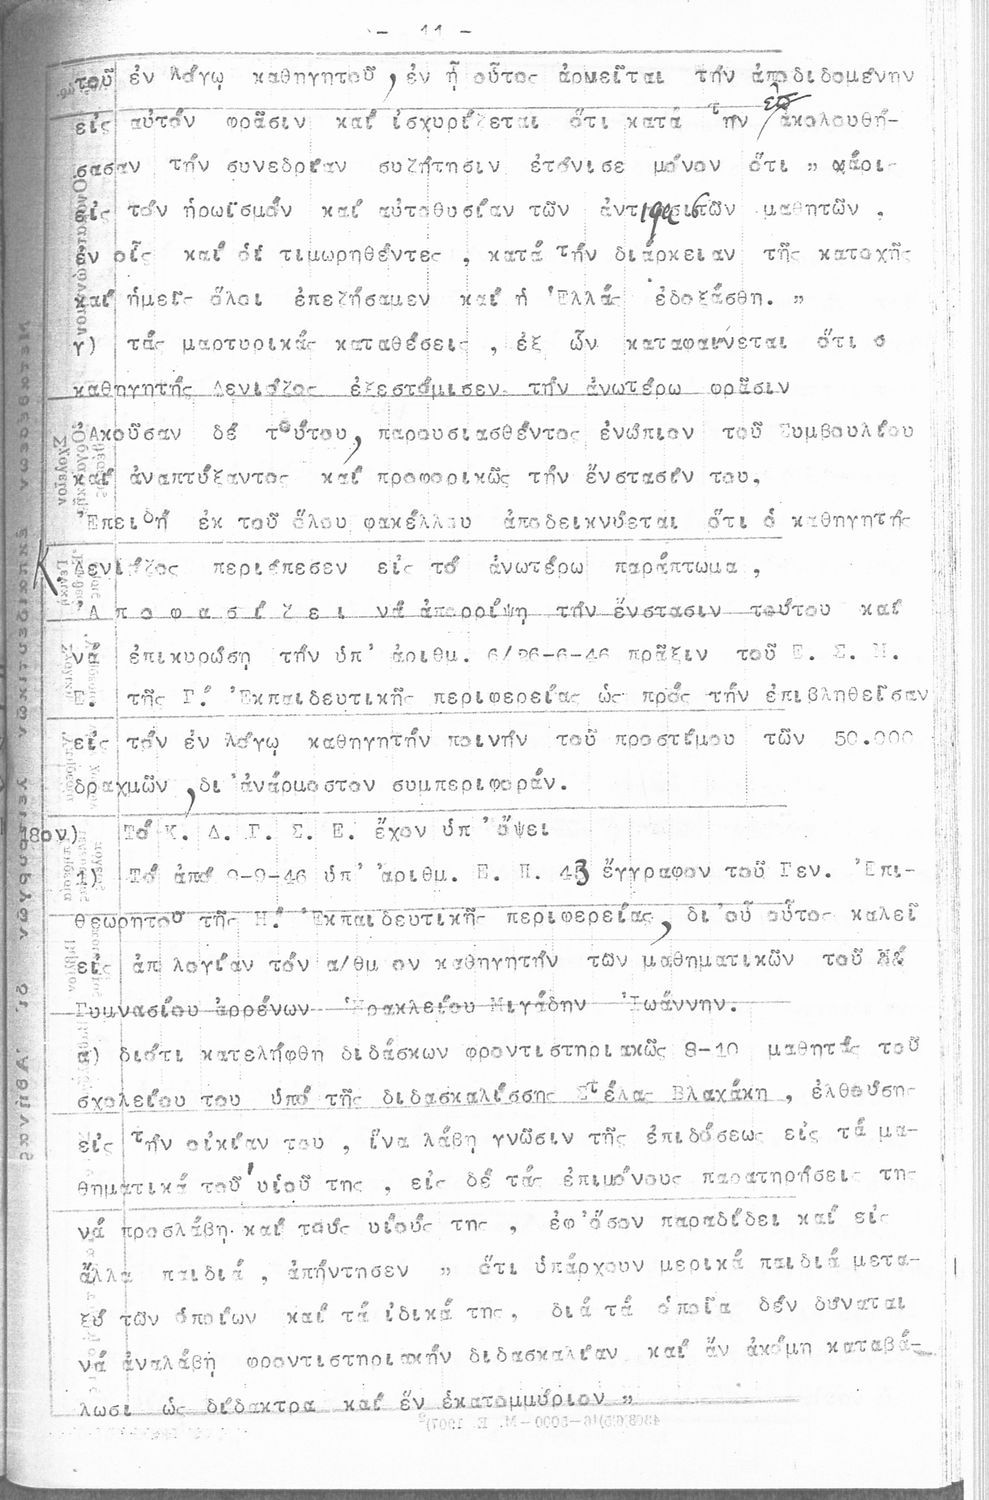 - 11 -
τοῦ ἐν λόγῳ καθηγητοῦ, ἐν ᾗ οὗτος ἀρνεῖται τήν ἀποδιδομένην
εἰς αὐτόν φρᾶσιν καί ἰσχυρίζεται ὅτι κατά τήν ἐπακολουθή-
σασαν τήν συνεδρίαν συζήτησιν ἐτόνισε μόνον ὅτι " χάρις
εἰς τόν ἡρωϊσμόν καί αὐτοθυσίαν τῶν ἀντιφασιτῶν μαθητῶν ,
ἐν οἷς καί οἱ τιμωρηθέντες , κατά τήν διάρκειαν τῆς κατοχῆς
καί ἡμεῖς ὅλοι ἐπεζήσαμεν καί ἡ Ἑλλάς ἐδοξάσθη. "
γ) τάς μαρτυρικάς καταθέσεις , ἐξ ὧν καταφαίνεται ὅτι ὁ
καθηγητής Δενιόζος ἐξεστόμισεν τήν ἀνωτέρω φρᾶσιν
Ἀκοῦσαν δέ τούτου, παρουσιασθέντος ἐνώπιον τοῦ Συμβουλίου
καί ἀναπτύξαντος καί προφορικῶς τήν ἔνστασίν του.
Ἐπειδή ἐκ τοῦ ὅλου φακέλλου ἀποδεικνύεται ὅτι ὁ καθηγητής
Δενιόζος περιέπεσεν εἰς τό ἀνωτέρω παράπτωμα ,
Ἀ π ο φ α σ ί ζ ε ι νά ἀπορρίψῃ τήν ἔνστασιν τούτου καί
νά ἐπικυρώσῃ τήν ὑπ' ἀριθμ. 6/26-6-46 πρᾶξιν τοῦ Ε. Σ. Μ.
Ε. τῆς Γ.΄ Ἐκπαιδευτικῆς περιφερείας ὡς πρός τήν ἐπιβληθεῖσαν
εἰς τόν ἐν λόγῳ καθηγητήν ποινήν τοῦ προστίμου τῶν 50.000
δραχμῶν , δι'ἀνάρμοστον συμπεριφοράν.
18ον) Τό Κ. Δ. Γ. Σ. Ε. ἔχον ὑπ' ὄψει
1) Τό ἀπό 9-9-46 ὑπ' ἀριθμ. Ε. Π. 43 ἔγγραφον τοῦ Γεν. Ἐπι-
θεωρητοῦ τῆς Η.΄ Ἐκπαιδευτικῆς περιφερείας, δι'οὗ οὗτος καλεῖ
εἰς ἀπ λογίαν τόν α/θμ ον καθηγητήν τῶν μαθηματικῶν τοῦ
Γυμνασίου ἀρρένων Ἡρακλείου Μιγάδην Ἰωάννην.
α) διότι κατελήφθη διδάσκων φροντιστηριακῶς 8-10 μαθητάς τοῦ
σχολείου του ὑπό τῆς διδασκαλίσσης Στέλας Βλαχάκη , ἐλθούσης
εἰς τήν οἰκίαν του , ἵνα λάβῃ γνῶσιν τῆς ἐπιδόσεως εἰς τά μα-
θηματικά τοῦ υἱοῦ της , εἰς δέ τάς ἐπιμόνους παρατηρήσεις της
νά προσλάβῃ καί τούς υἱούς της , ἐφ'ὅσον παραδίδει καί εἰς
ἄλλα παιδιά , ἀπήντησεν " ὅτι ὑπάρχουν μερικά παιδιά μετα-
ξύ τῶν ὁποίων καί τά ἰδικά της, διά τά ὁποῖα δέν δύναται
νά ἀναλάβῃ φροντιστηριακήν διδασκαλίαν καί ἄν ἀκόμη καταβά-
λωσι ὡς δίδακτρα καί ἕν ἑκατομμύριον "